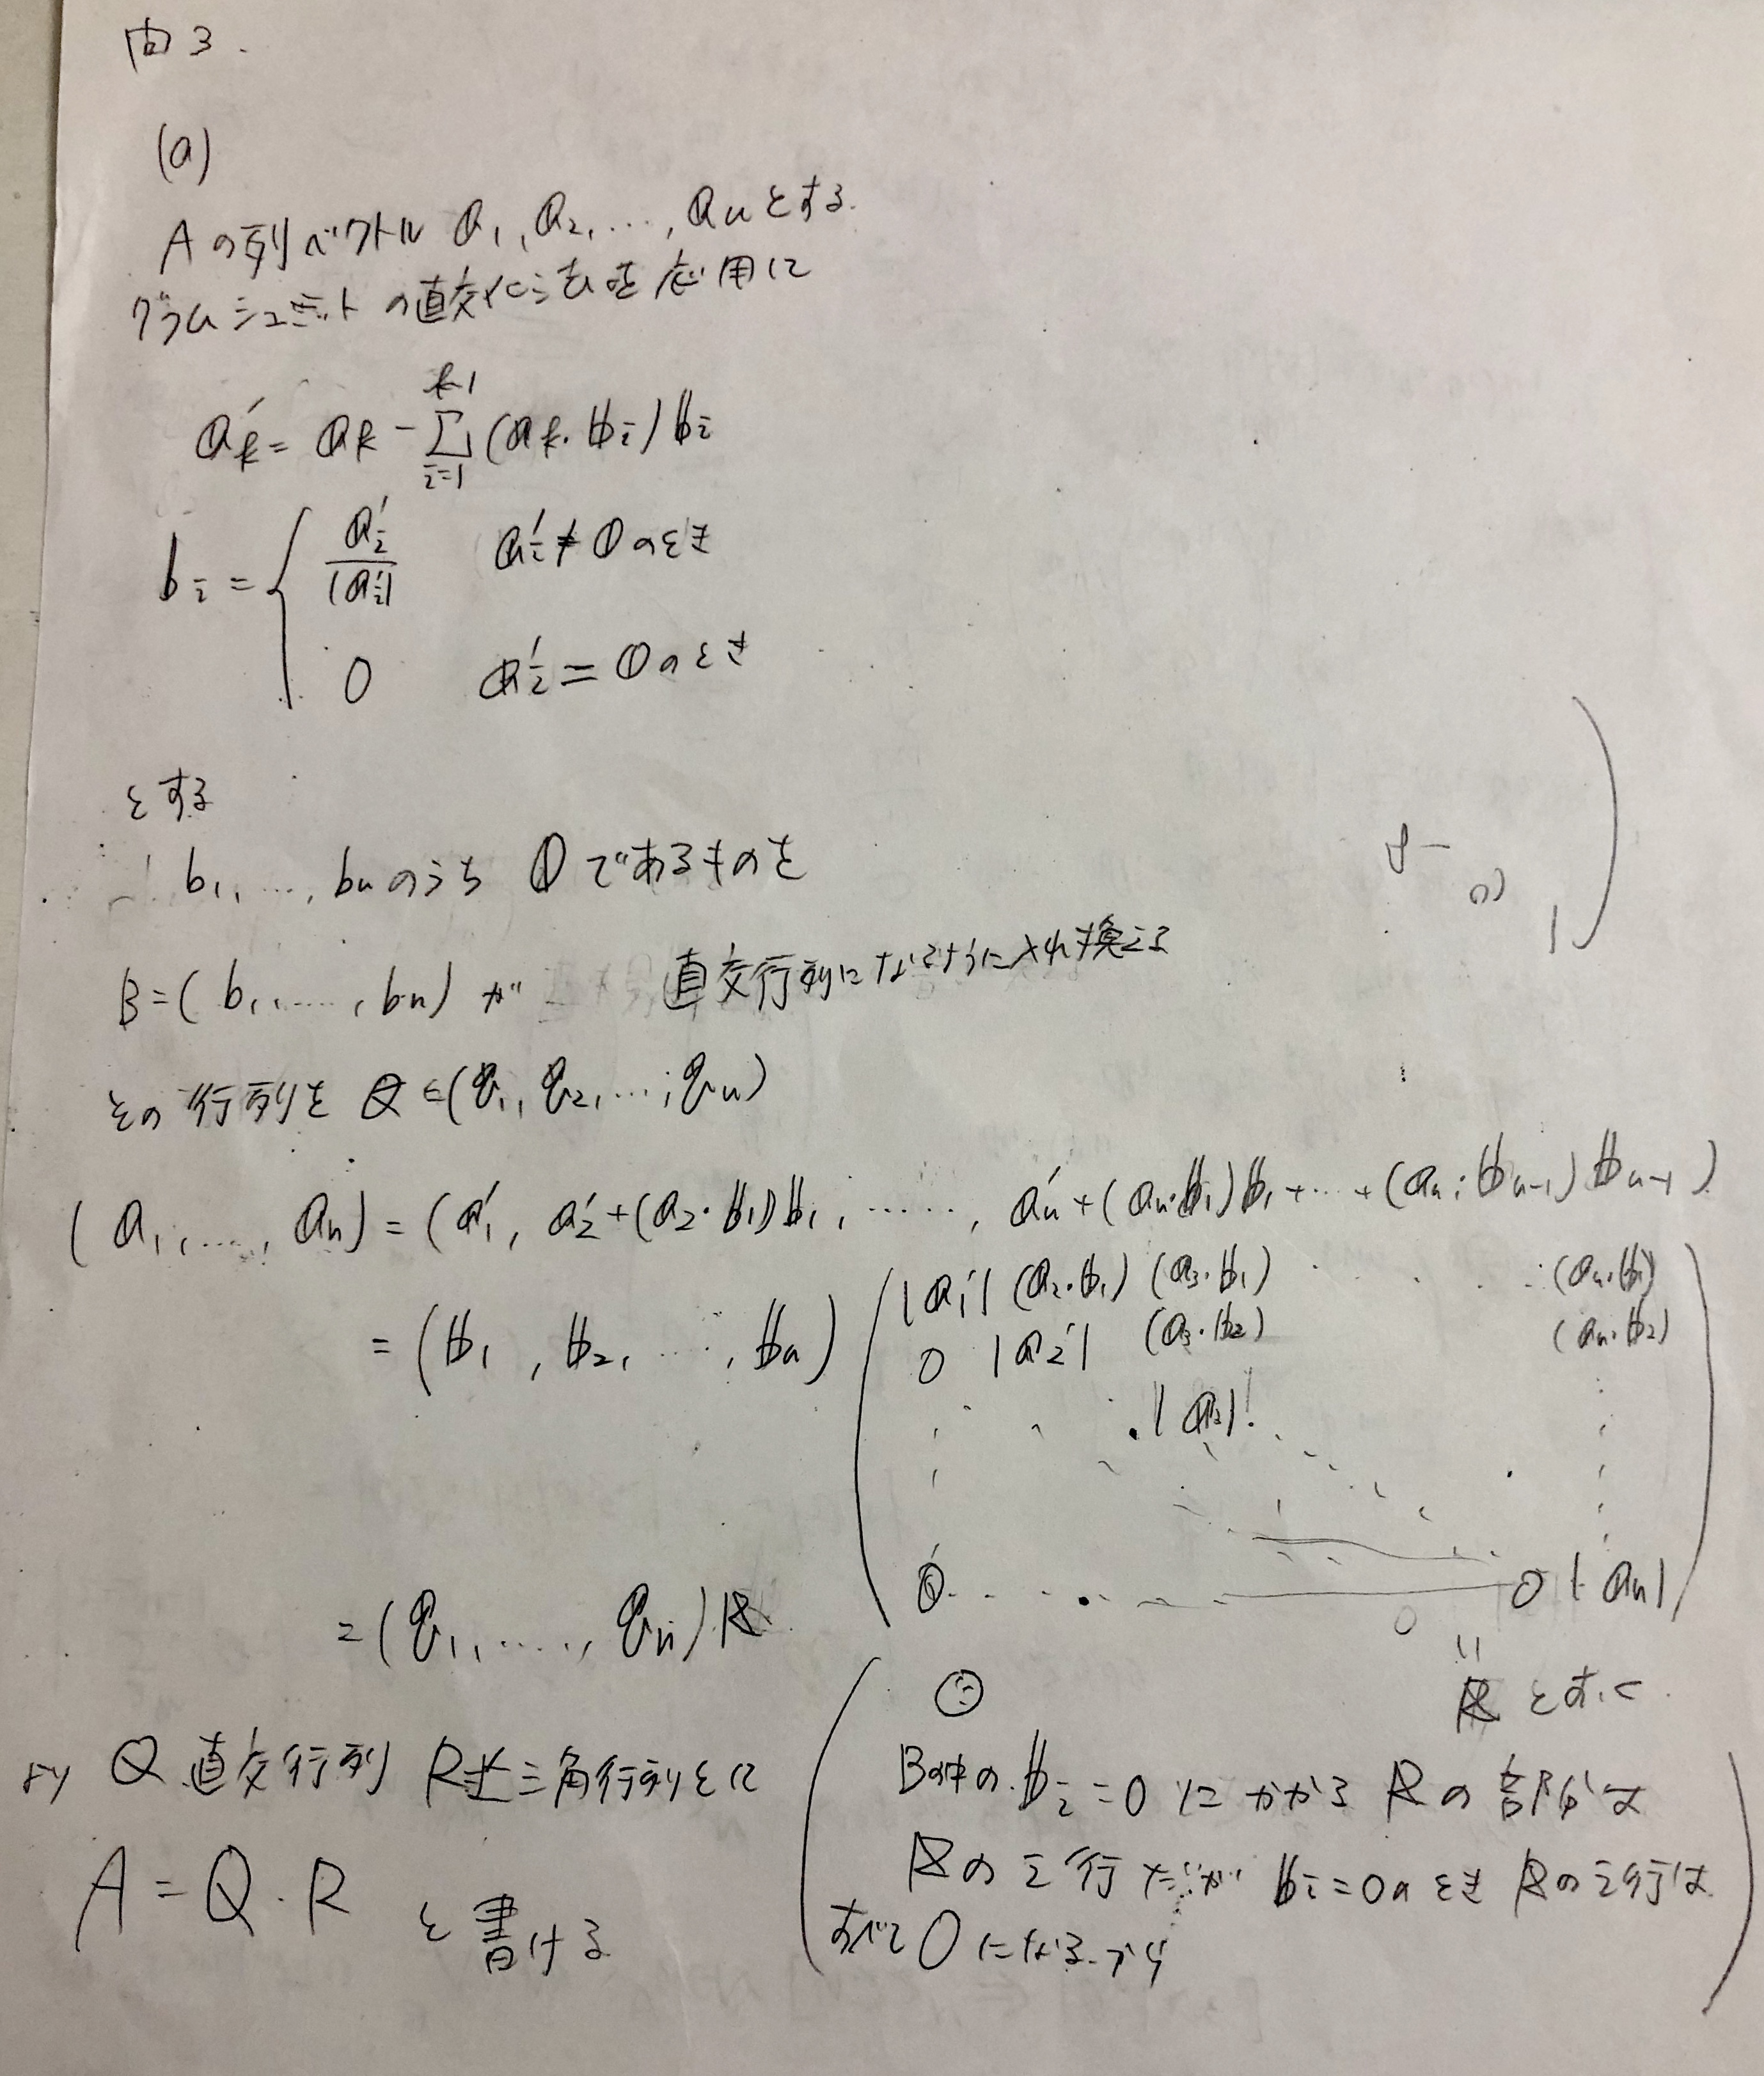 問3.
(a)
Aの列ベクトル a₁, a₂, …, aₙとする.
グラムシュミットの直交化法を応用に
a'ₖ = aₖ - Σ_{i=1}^{k-1} (aₖ・bᵢ)bᵢ
bᵢ = { a'ᵢ/|a'ᵢ| a'ᵢ ≠ 0のとき
0 a'ᵢ = 0のとき
とする
b₁, …, bₙのうち 0であるものを
B = (b₁, …, bₙ) が 直交行列になるように入れ換える
その行列を Q = (q₁, q₂, …, qₙ)
(a₁, …, aₙ) = (a'₁, a'₂+(a₂・b₁)b₁, ……, a'ₙ+(aₙ・b₁)b₁+…+(aₙ・bₙ₋₁)bₙ₋₁)
= (b₁, b₂, …, bₙ) ( |a'₁| (a₂・b₁) (a₃・b₁) … (aₙ・b₁)
0 |a'₂| (a₃・b₂) (aₙ・b₂)
|a₃|
0 … 0 |aₙ| )
= (q₁, …, qₙ)R
" R とおく.
より Q 直交行列 R上三角行列とに
A = Q・R と書ける
(
B の中の bᵢ = 0 に かかる R の 部分は
R の i 行 だが bᵢ = 0のとき Rのi行は
すべて 0 になるから
)